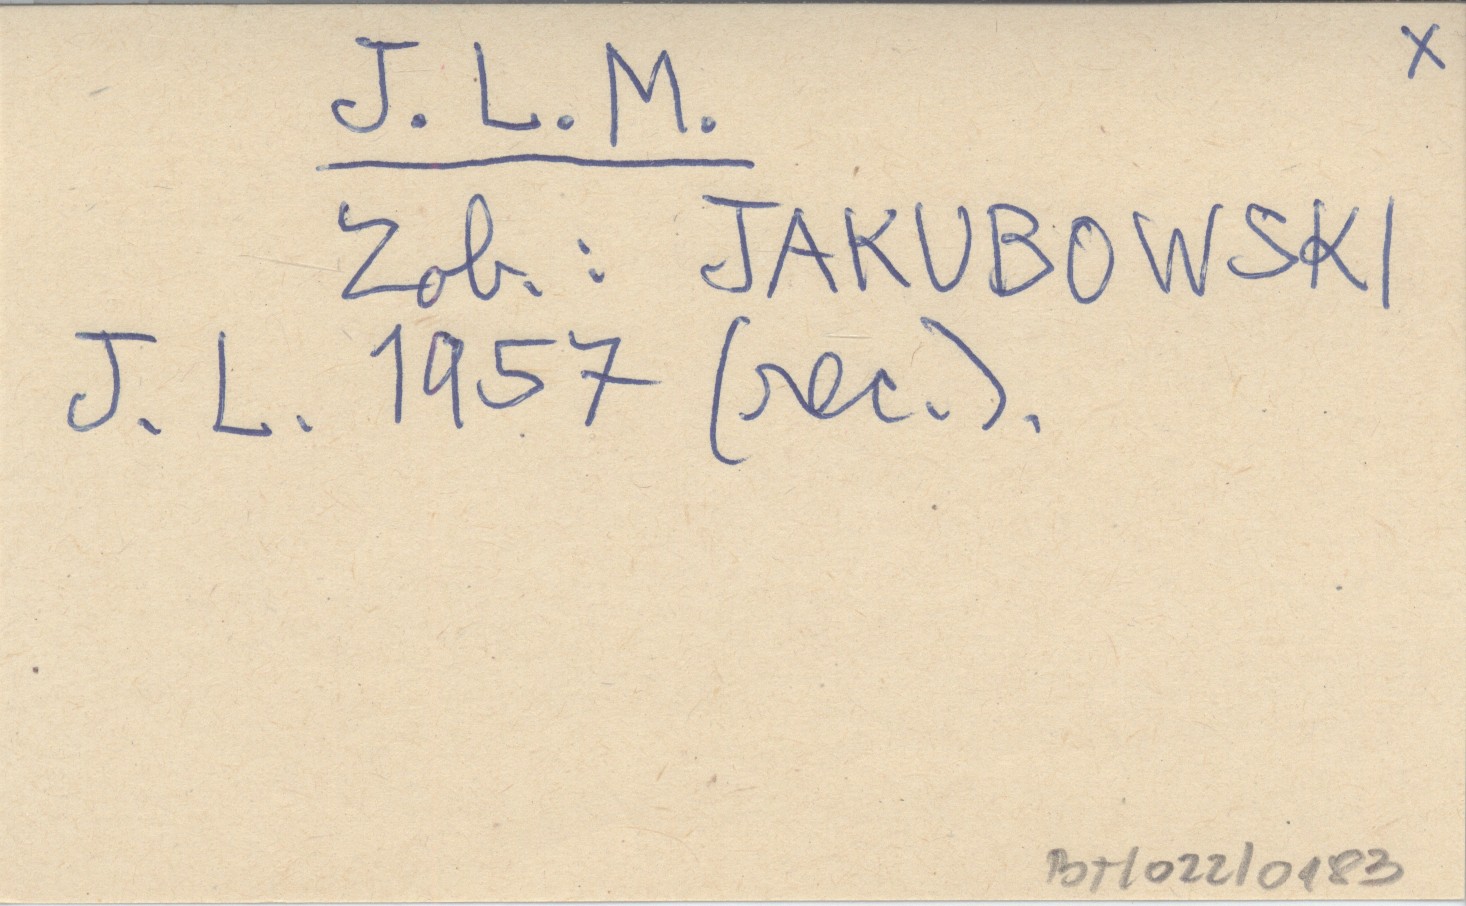 x
J. L. M.
Zob.: JAKUBOWSKI
J. L. 1957 (rec.).
BT/022/0183